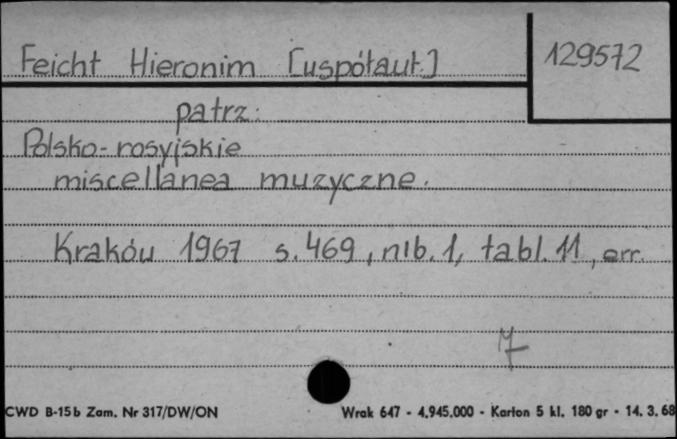 Feicht Hieronim [współaut.]
129572
patrz:
Polsko-rosyjskie
miscellanea muzyczne.
Kraków 1967 s. 469, nlb. 1, tabl. 11, err.
CWD B-15b Zam. Nr 317/DW/ON
Wrak 647 - 4.945.000 - Karton 5 kl. 180 gr - 14. 3. 68